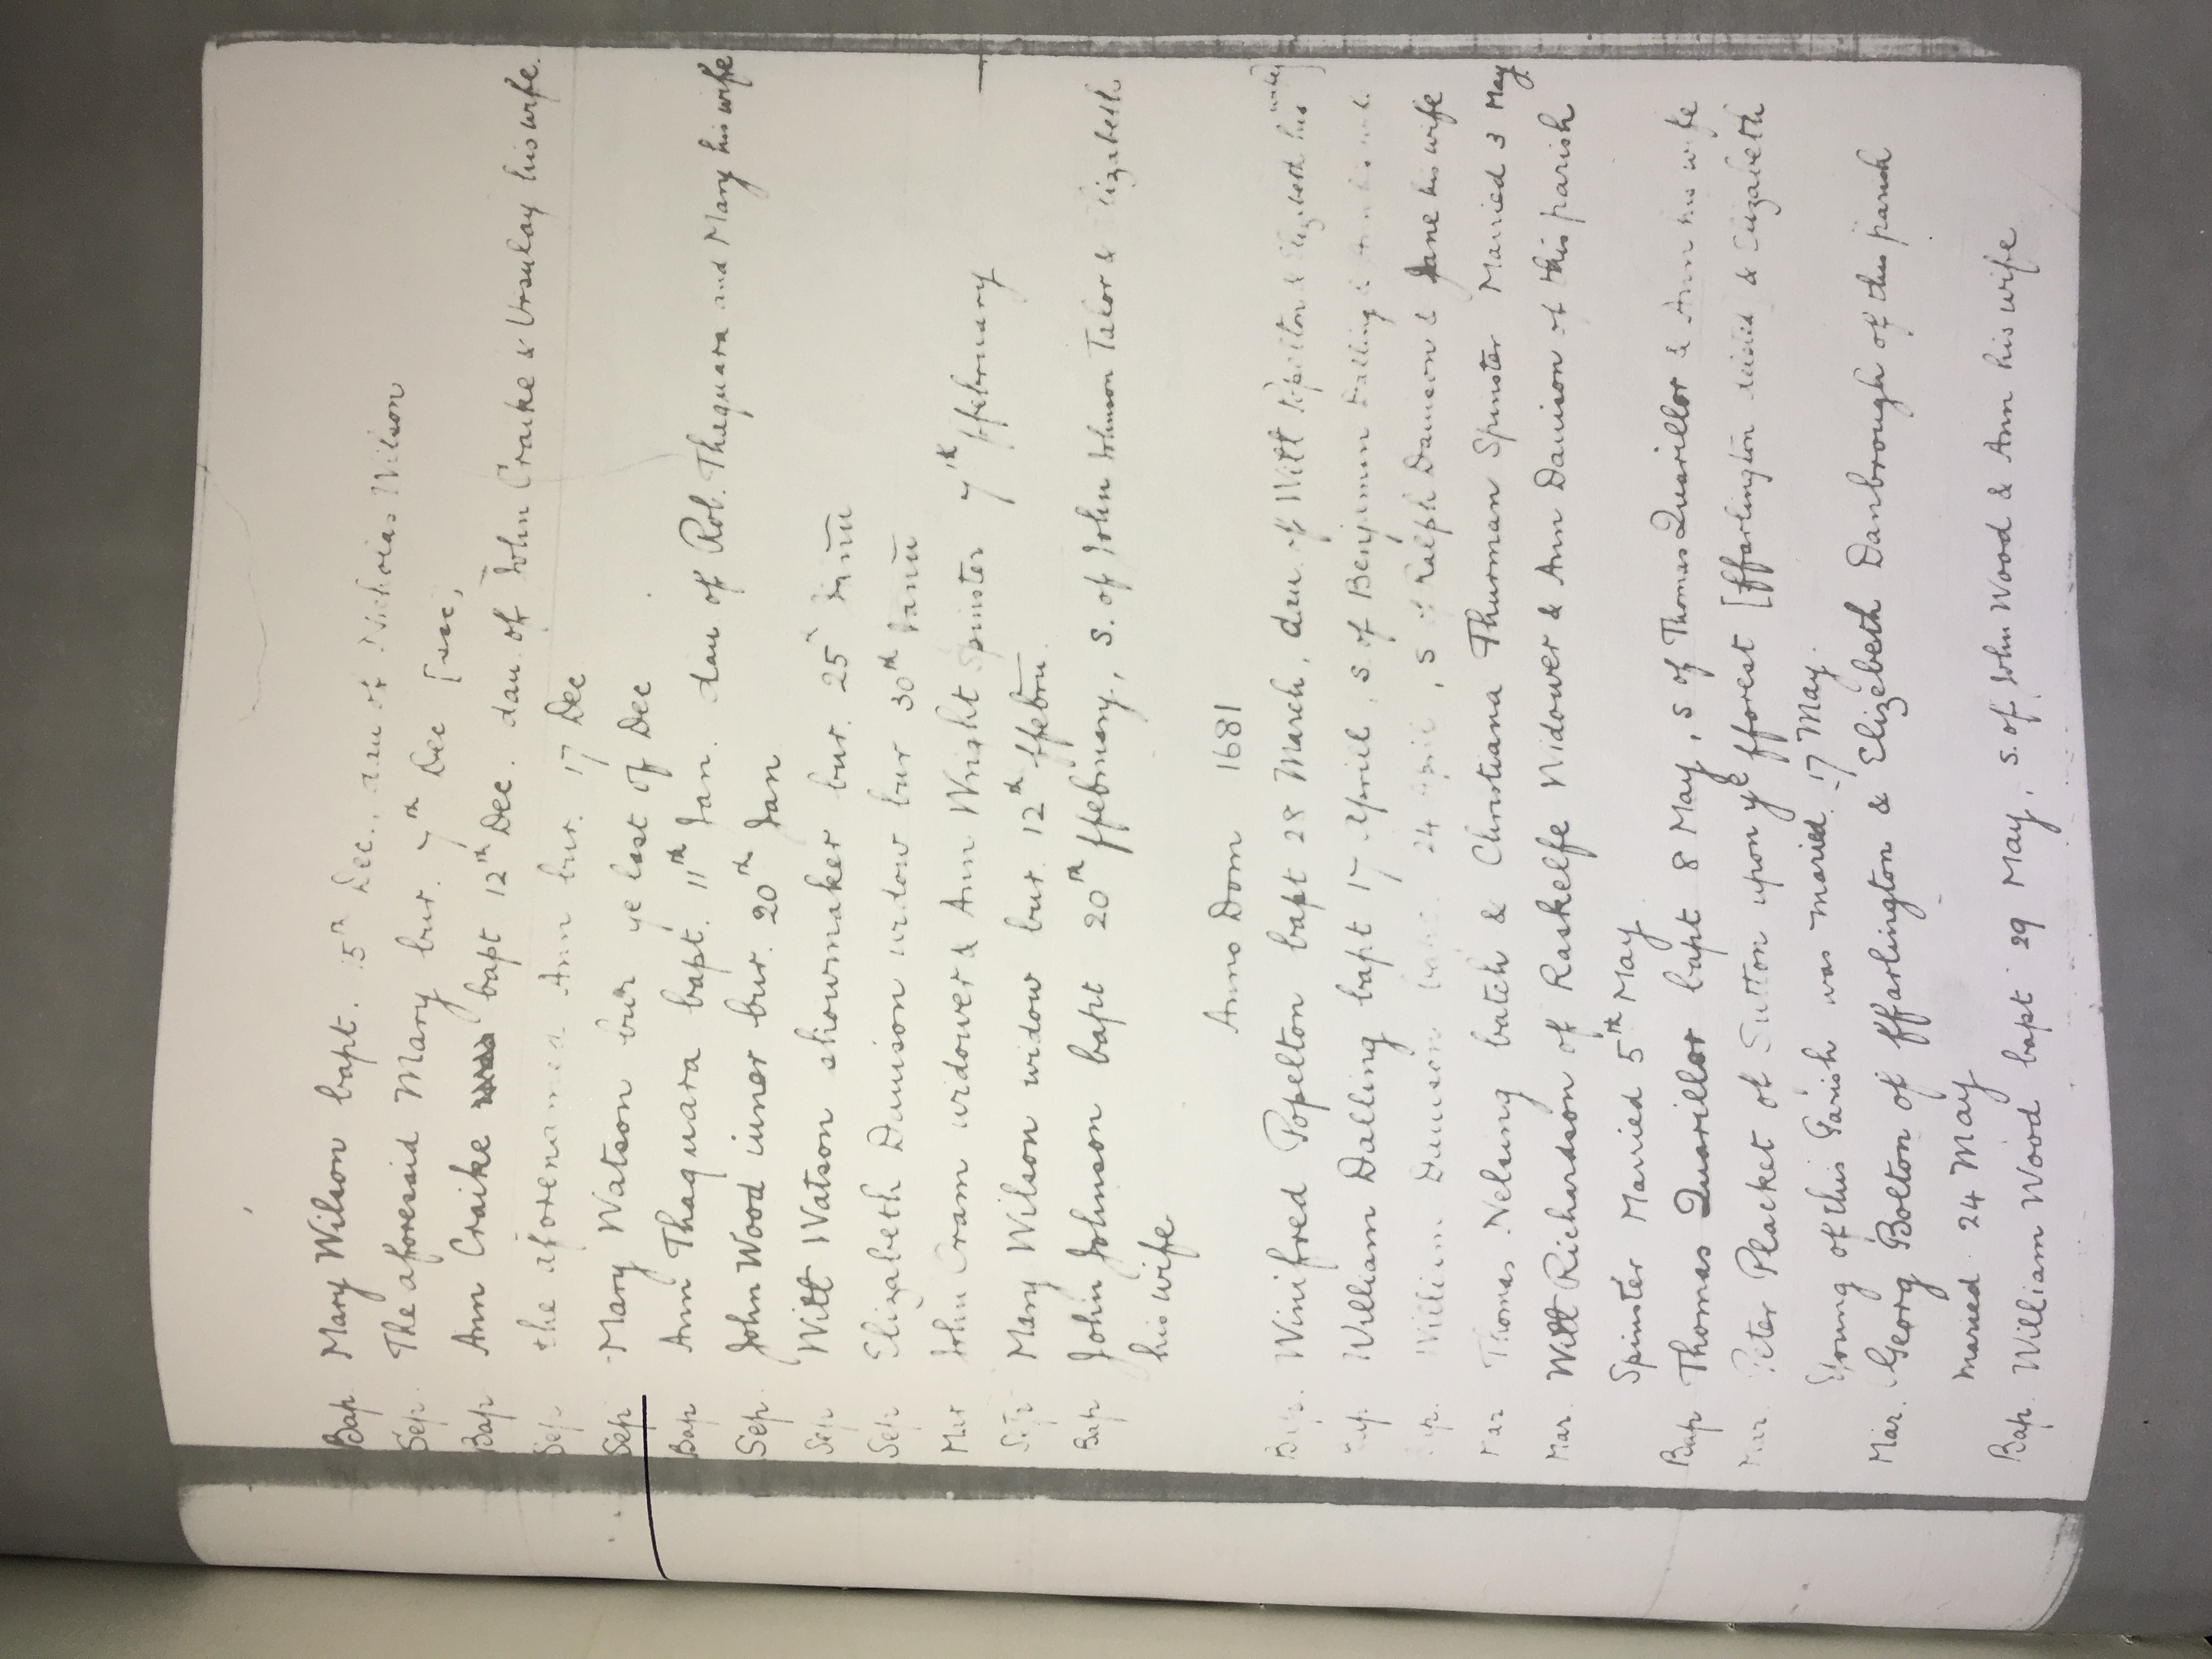 Bap Mary Wilson bapt. 5th Dec., dau of Nicholas Wilson
Sep. The aforesaid Mary bur. 7th Dec [sic,
Bap Ann Craike bapt 12th Dec. dau. of John Craike & Ursulay his wife.
Sep the aforenamed Ann bur. 17 Dec
Sep Mary Watson bur ye last of Dec
Bap Ann Thaquara bapt. 11th Jan. dau of Rob. Thequara and Mary his wife
Sep. John Wood iuner bur. 20th Jan
Sep Witt Watson showmaker bur. 25 Janu
Sep Elizabeth Davison widow bur 30th Janu
Mar John Cram widower & Ann Wright Spinster 7th ffebruary
Sep Mary Wilson widow bur. 12th ffebru.
Bap John Johnson bapt 20th ffebruary, s. of John Johnson Talor & Elizabeth
his wife
Anno Dom 1681
Bap. Winifred Popelton bapt 28 March, dau. of Witt Popelton & Elizabeth his wife]
Bap. William Dalling bapt 17 April, s of Benjamin Dalling & Ann his wife
Bap. William Davison bapt. 24 April, s of Ralph Davison & Jane his wife
Mar Thomas Nelsing batch & Christiana Thurman Spinster Married 3 May
Mar. Witt Richardson of Raskelfe Widower & Ann Davison of this parish
Spinster Married 5th May
Bap Thomas Quarillor bapt 8 May, s of Thomas Quarillor & Ann his wife
Mar. Peter Placket of Sutton upon ye fforest [ffarlington & Elizabeth
Young of this Parish was maried 17 May.
Mar. Georg Bolton of ffarlington & Elizebeth Danbrough of this parish
maried 24 May
Bap. William Wood bapt 29 May, s. of John Wood & Ann his wife